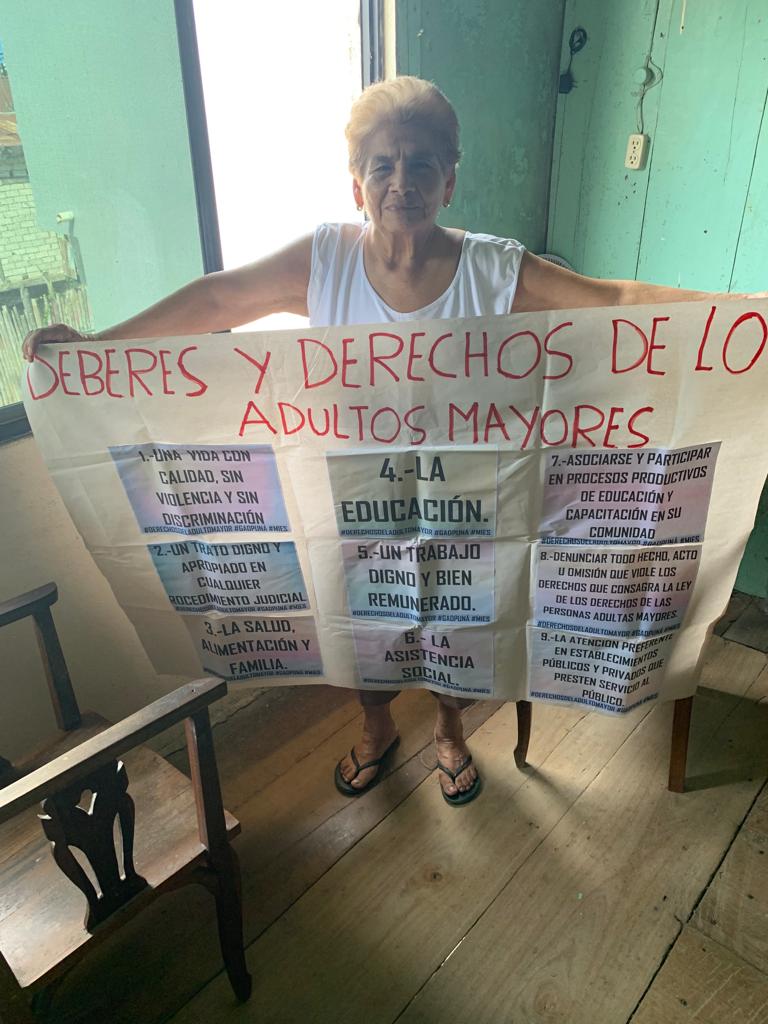 DEBERES Y DERECHOS DE LO
ADULTOS MAYORES
1.-UNA VIDA CON
CALIDAD, SIN
VIOLENCIA Y SIN
DISCRIMINACIÓN
#DERECHOSDELADULTOMAYOR #GADPUNA #MIES
2.-UN TRATO DIGNO Y
APROPIADO EN
CUALQUIER
ROCEDIMIENTO JUDICIAL
#DERECHOSDELADULTOMAYOR #GADPUNA #MIES
3.-LA SALUD,
ALIMENTACIÓN Y
FAMILIA.
#DERECHOSDELADULTOMAYOR #GADPUNA #MIES
4.-LA
EDUCACIÓN.
#DERECHOSDELADULTOMAYOR #GADPUNA #MIES
5.-UN TRABAJO
DIGNO Y BIEN
REMUNERADO.
#DERECHOSDELADULTOMAYOR #GADPUNA #MIES
6.- LA
ASISTENCIA
SOCIAL.
#DERECHOSDELADULTOMAYOR #GADPUNA #MIES
7.-ASOCIARSE Y PARTICIPAR
EN PROCESOS PRODUCTIVOS
DE EDUCACIÓN Y
CAPACITACIÓN EN SU
COMUNIDAD
#DERECHOSDELADULTOMAYOR #GADPUNA #MIES
8.-DENUNCIAR TODO HECHO, ACTO
U OMISIÓN QUE VIOLE LOS
DERECHOS QUE CONSAGRA LA LEY
DE LOS DERECHOS DE LAS
PERSONAS ADULTAS MAYORES.
#DERECHOSDELADULTOMAYOR #GADPUNA #MIES
9.-LA ATENCIÓN PREFERENTE
EN ESTABLECIMIENTOS
PÚBLICOS Y PRIVADOS QUE
PRESTEN SERVICIO AL
PÚBLICO.
#DERECHOSDELADULTOMAYOR #GADPUNA #MIES